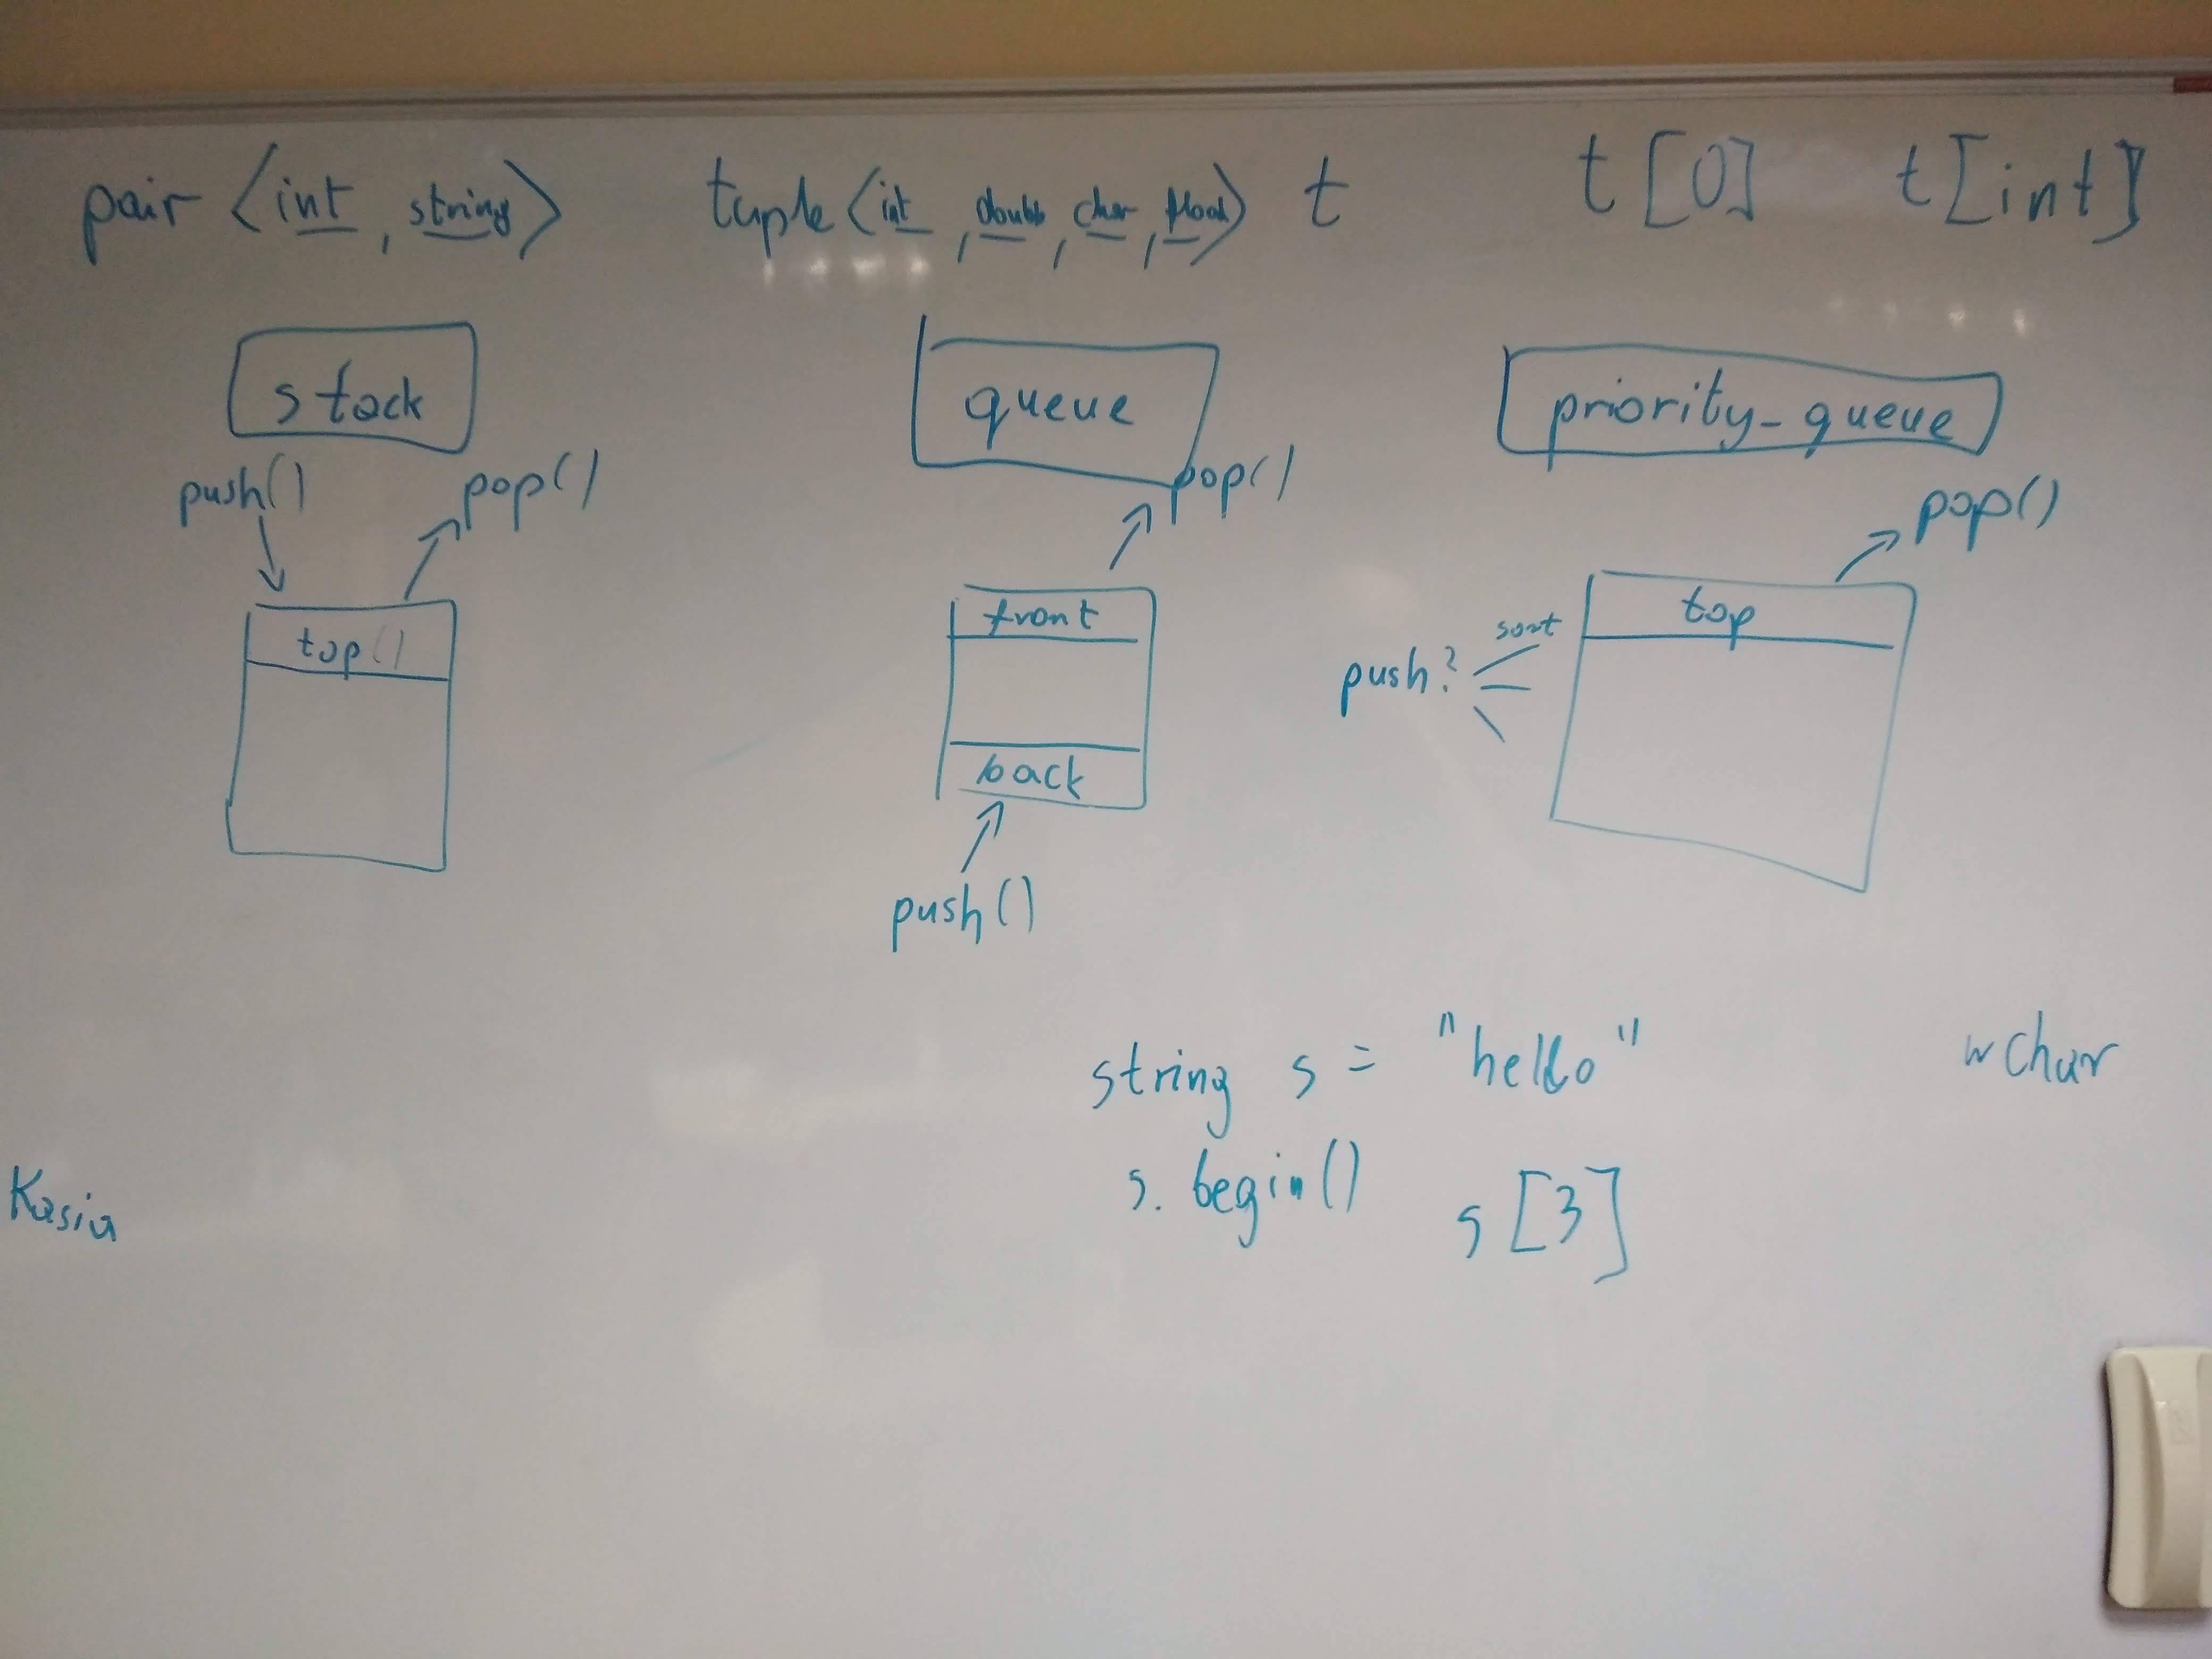 pair <int, string> tuple <int, double, char, float> t t[0] t[int]
stack
push() pop()
top()
queue
pop()
front
back
push()
priority_queue
pop()
top
sort
push?
string s = "hello"
s.begin() s[3]
wchar
Kasia